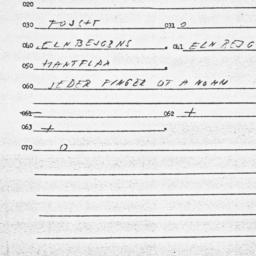 020
030 FOJCHT 031 O
040 ELNBEJGBNS 041 ELNBEJG
050 HANTFLAX
060 JEDER FINGER OT A NOMM
061 062 +
063 +
070 O